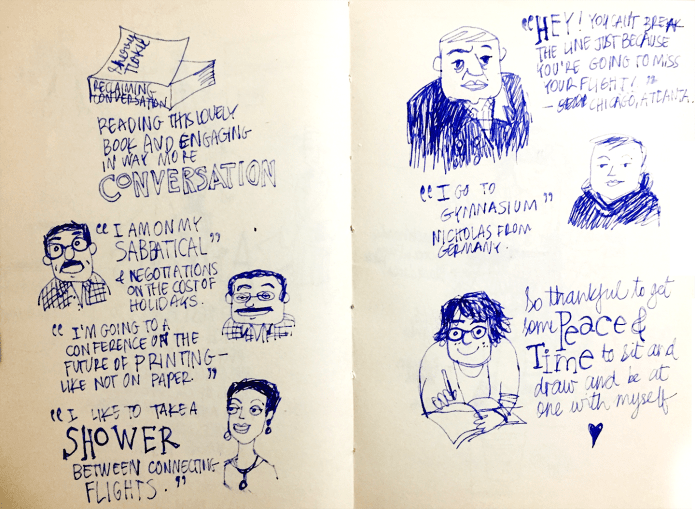 Sherry
Turkle
RECLAIMING
CONVERSATION
READING THIS LOVELY
BOOK AND ENGAGING
IN WAY MORE
CONVERSATION
"I AM ON MY
SABBATICAL"
& NEGOTIATIONS
ON THE COST OF
HOLIDAYS.
"I'M GOING TO A
CONFERENCE ON THE
FUTURE OF PRINTING—
LIKE NOT ON PAPER."
"I LIKE TO TAKE A
SHOWER
BETWEEN CONNECTING
FLIGHTS."
"HEY! YOU CAN'T BREAK
THE LINE JUST BECAUSE
YOU'RE GOING TO MISS
YOUR FLIGHT!"
— CHICAGO, ATLANTA.
"I GO TO
GYMNASIUM"
NICHOLAS FROM
GERMANY.
So thankful to get
some Peace &
Time to sit and
draw and be at
one with myself